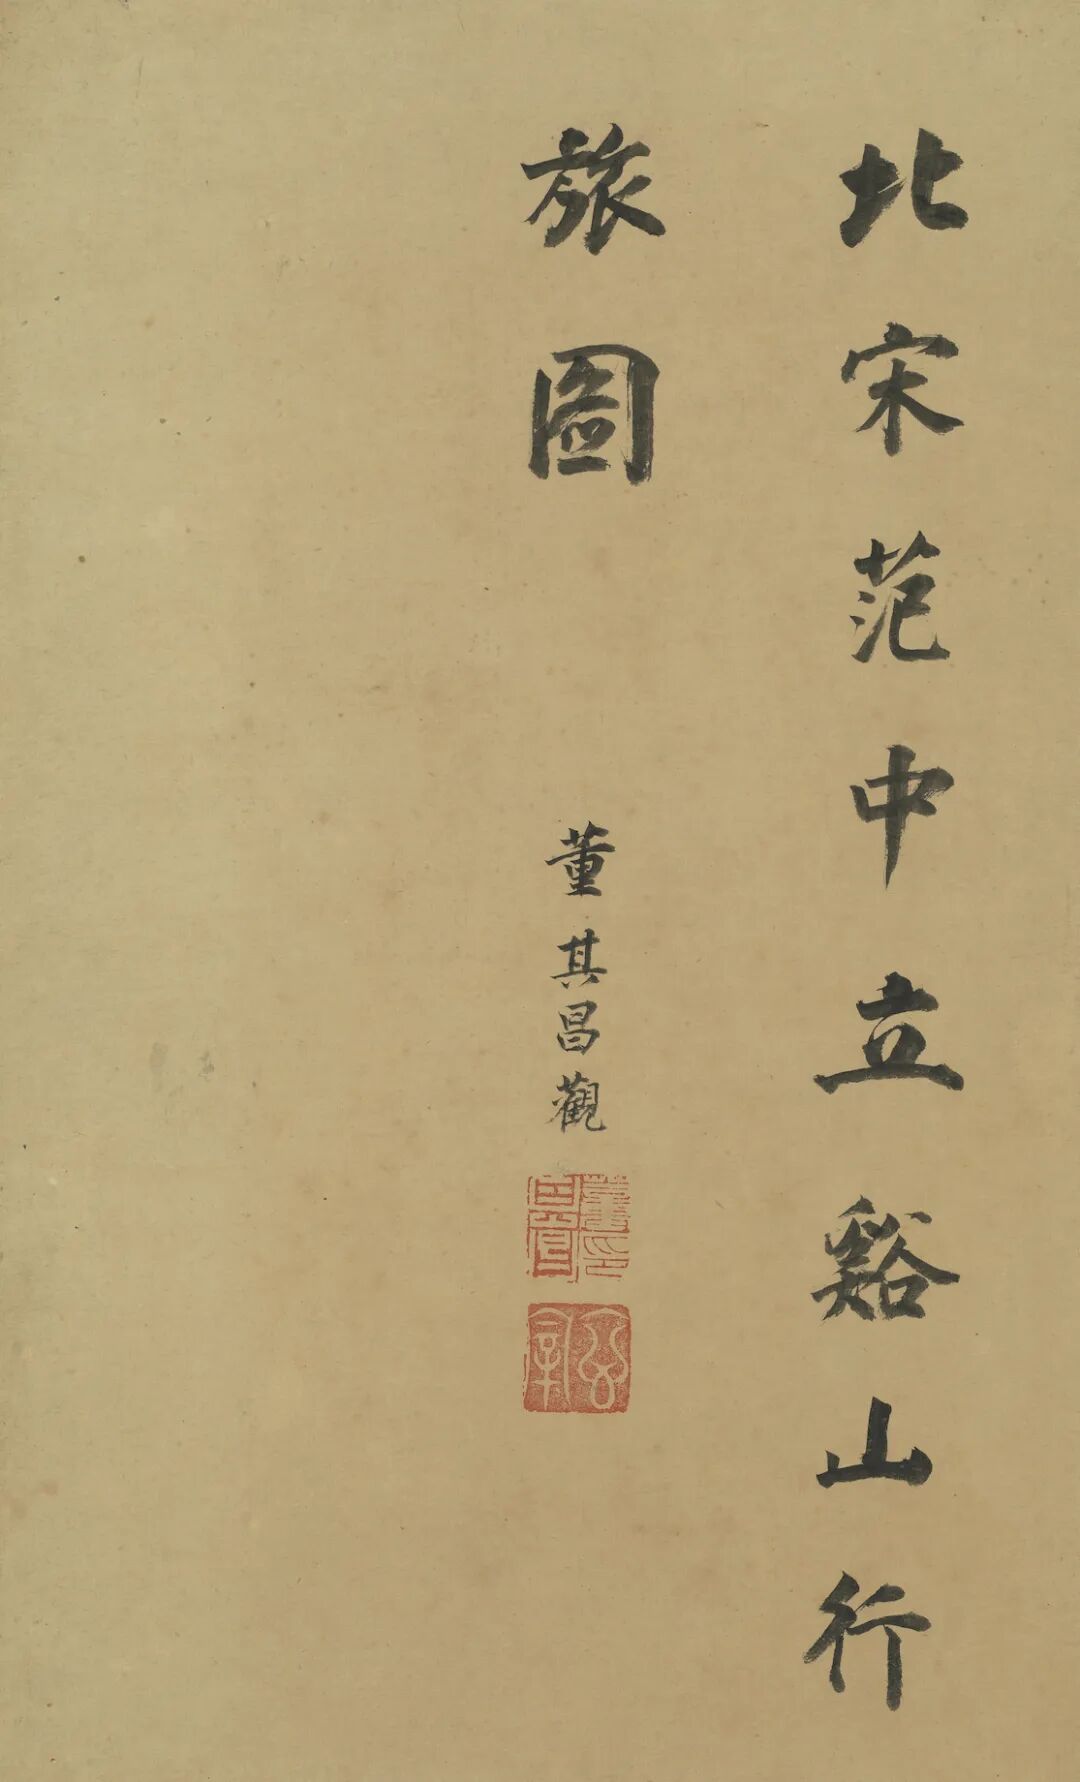 北宋范中立谿山行
旅圖
董其昌觀